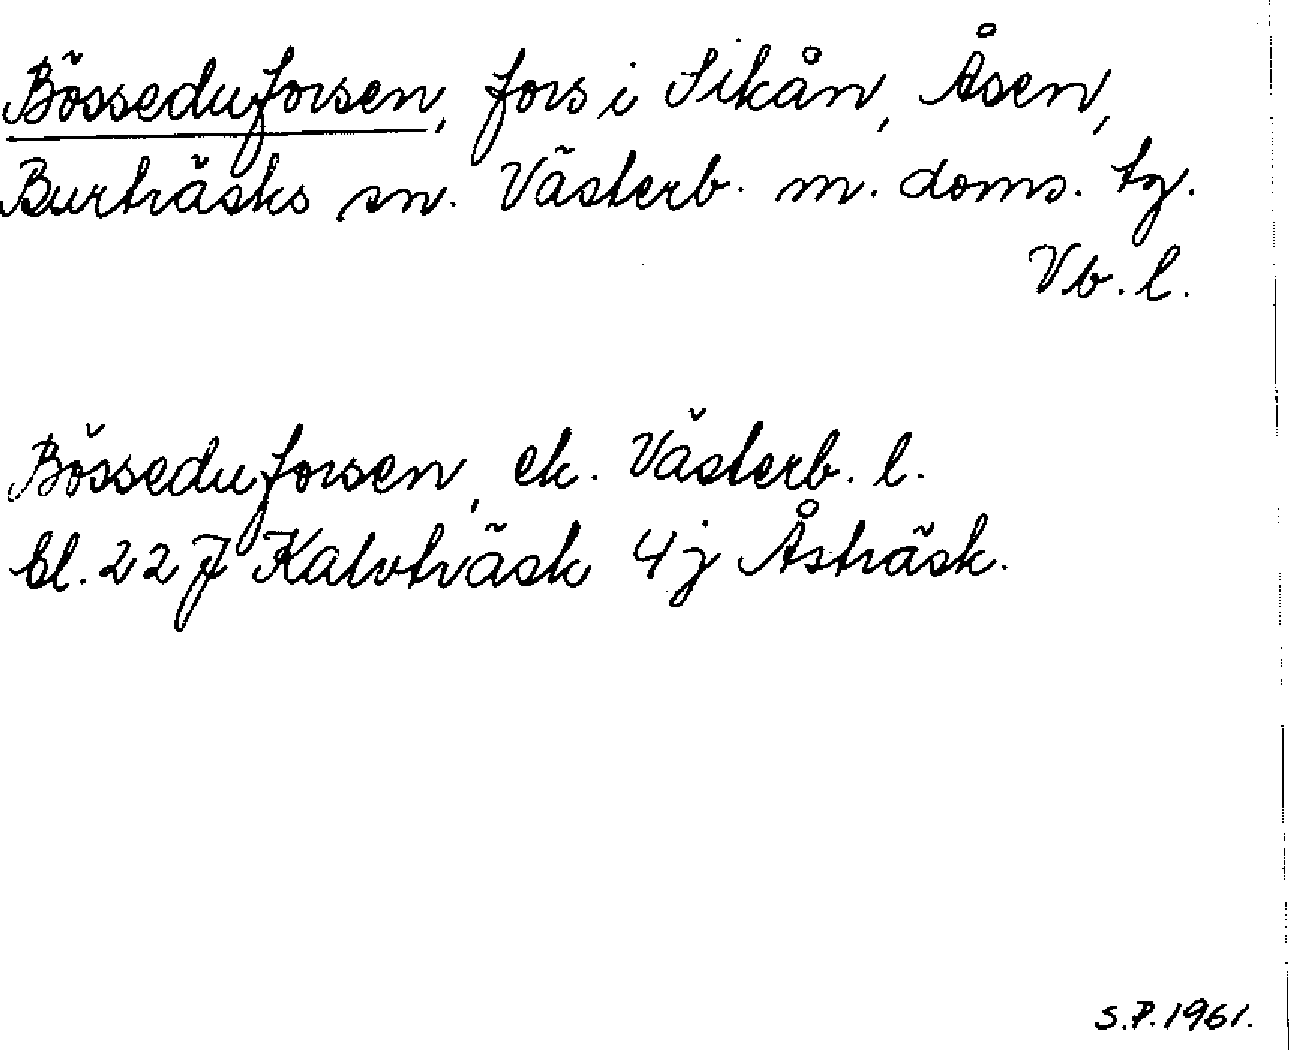 Bösseduforsen, fors i Sikån, Åsen,
Burträsks sn. Västerb. m. doms. tg.
Vb. l.
Bösseduforsen, ek. Västerb. l.
bl. 22 J Kalvträsk 4j Åsträsk.
S.P. 1961.